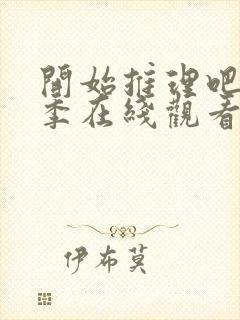 開始推理吧
季在綫觀看
伊布莫